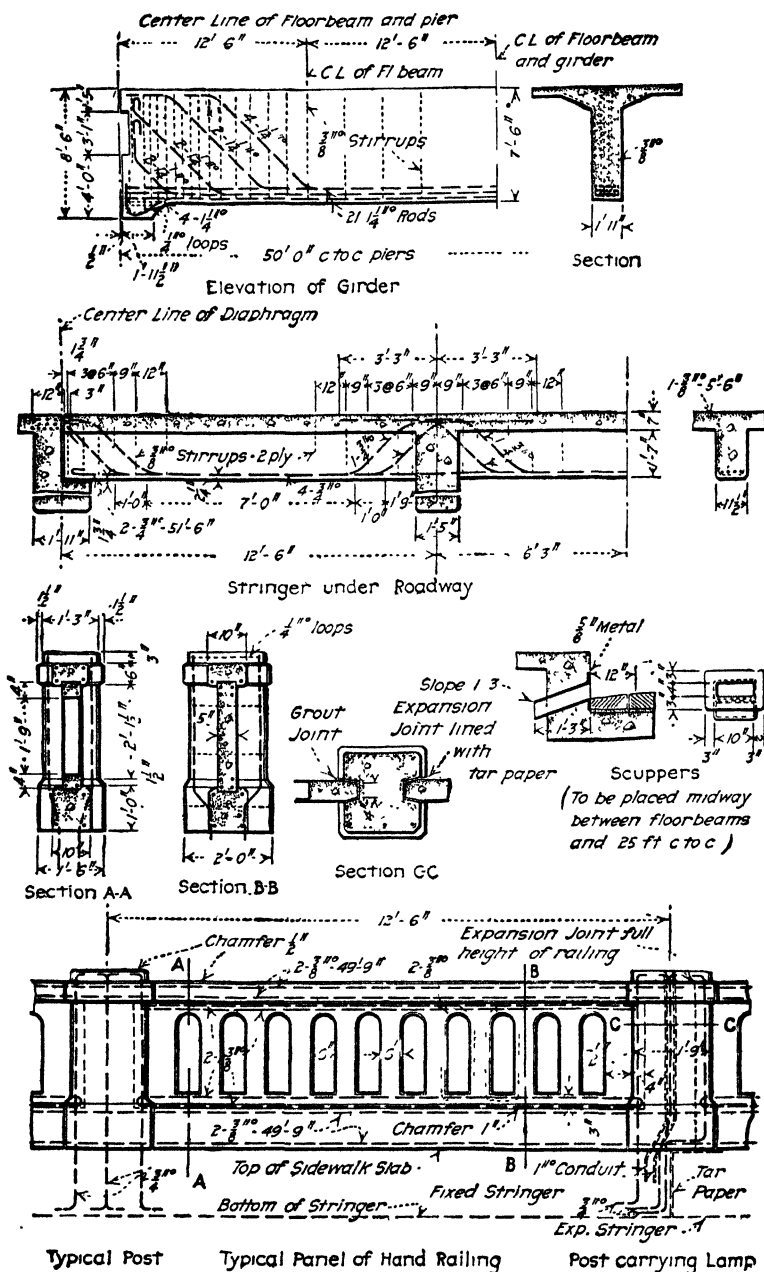 Center Line of Floorbeam and pier
12'-6" 12'-6"
C L of Floorbeam
and girder
C L of Fl beam
8'-6"
3'-1"
4'-0"
3/8"° Stirrups
7'-6"
3/8"°
4-1 1/4"°
1/4"° loops
21 1 1/4"° Rods
1/2"
1'-11 1/2"
50'0" c to c piers
1'11"
Section
Elevation of Girder
Center Line of Diaphragm
1 3/4"
3@6" 9" 12"
12" 3"
3'-3" 3'-3"
12" 9" 3@6" 9" 9" 3@6" 9" 12"
1-3/8"°-5'-6"
7"
3/8"°
Stirrups-2ply
1'-7"
1'-0" 7'-0" 4-3/4"° 1'0" 1'9"
2-3/4"°-51'-6"
1'-11" 1'-5" 11 1/2"
12'-6" 6'3"
Stringer under Roadway
1 1/2" 1'-3" 1 1/2"
3"
6"
4"
1'-9"
4"
2'-1 1/2"
1 1/2"
1'-0"
10"
1'-5"
Section A-A
10" 1/4"° loops
5"
2'-0"
Section B-B
Grout
Joint
Slope 1 3
Expansion
Joint lined
with
tar paper
Section C-C
5/6" Metal
12"
1'-3"
3" 10" 3"
Scuppers
(To be placed midway
between floorbeams
and 25 ft c to c)
12'-6"
Chamfer 1/2"
Expansion Joint full
height of railing
A
2-3/8"°-49'-9" 2-3/8"°
B
C C
2-3/8"°
6" 6"
1'-9"
4"
2-3/8"°-49'-9"
Chamfer 1"
3"
A
Top of Sidewalk Slab
B
1"° Conduit
Tar
Paper
2-3/4"°
Bottom of Stringer
Fixed Stringer
3/4"°
Exp. Stringer
Typical Post Typical Panel of Hand Railing Post carrying Lamp